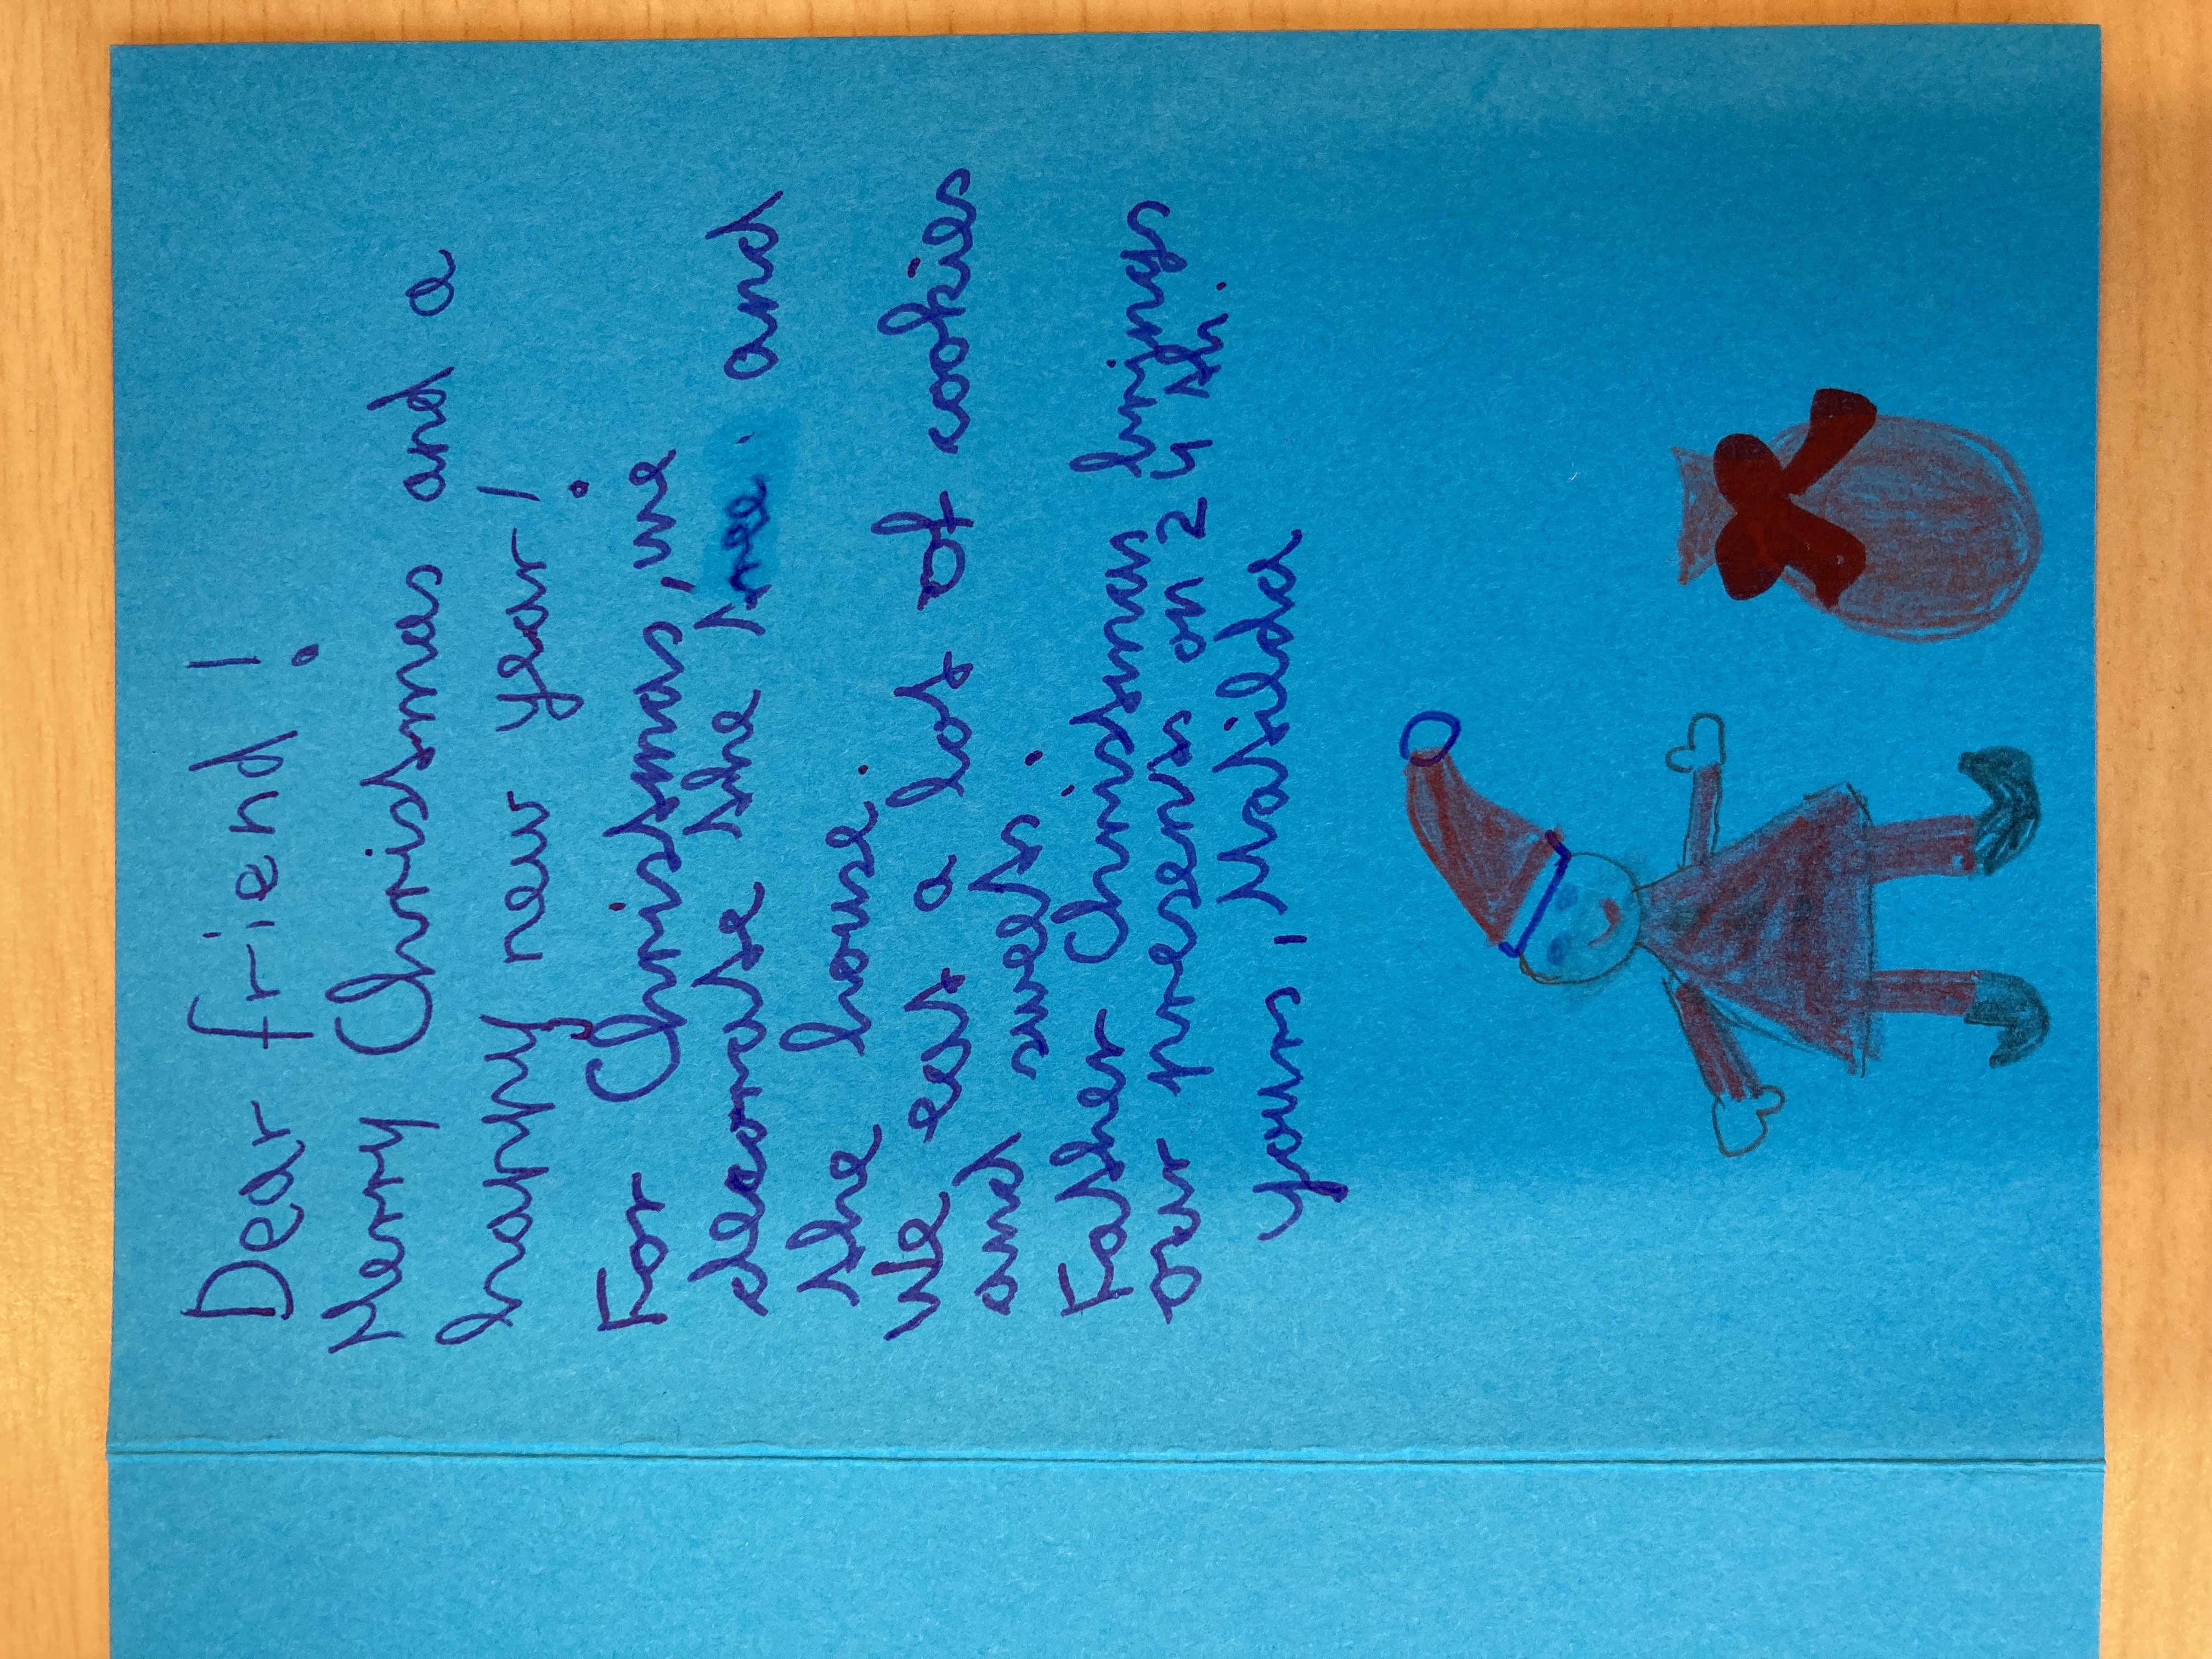 Dear friend!
Merry Christmas and a
happy new year!
For Christmas, we
decorate the tree and
the house.
We eat a lot of cookies
and sweets.
Father Christman brings
our presents on 24th.
yours, Matilda